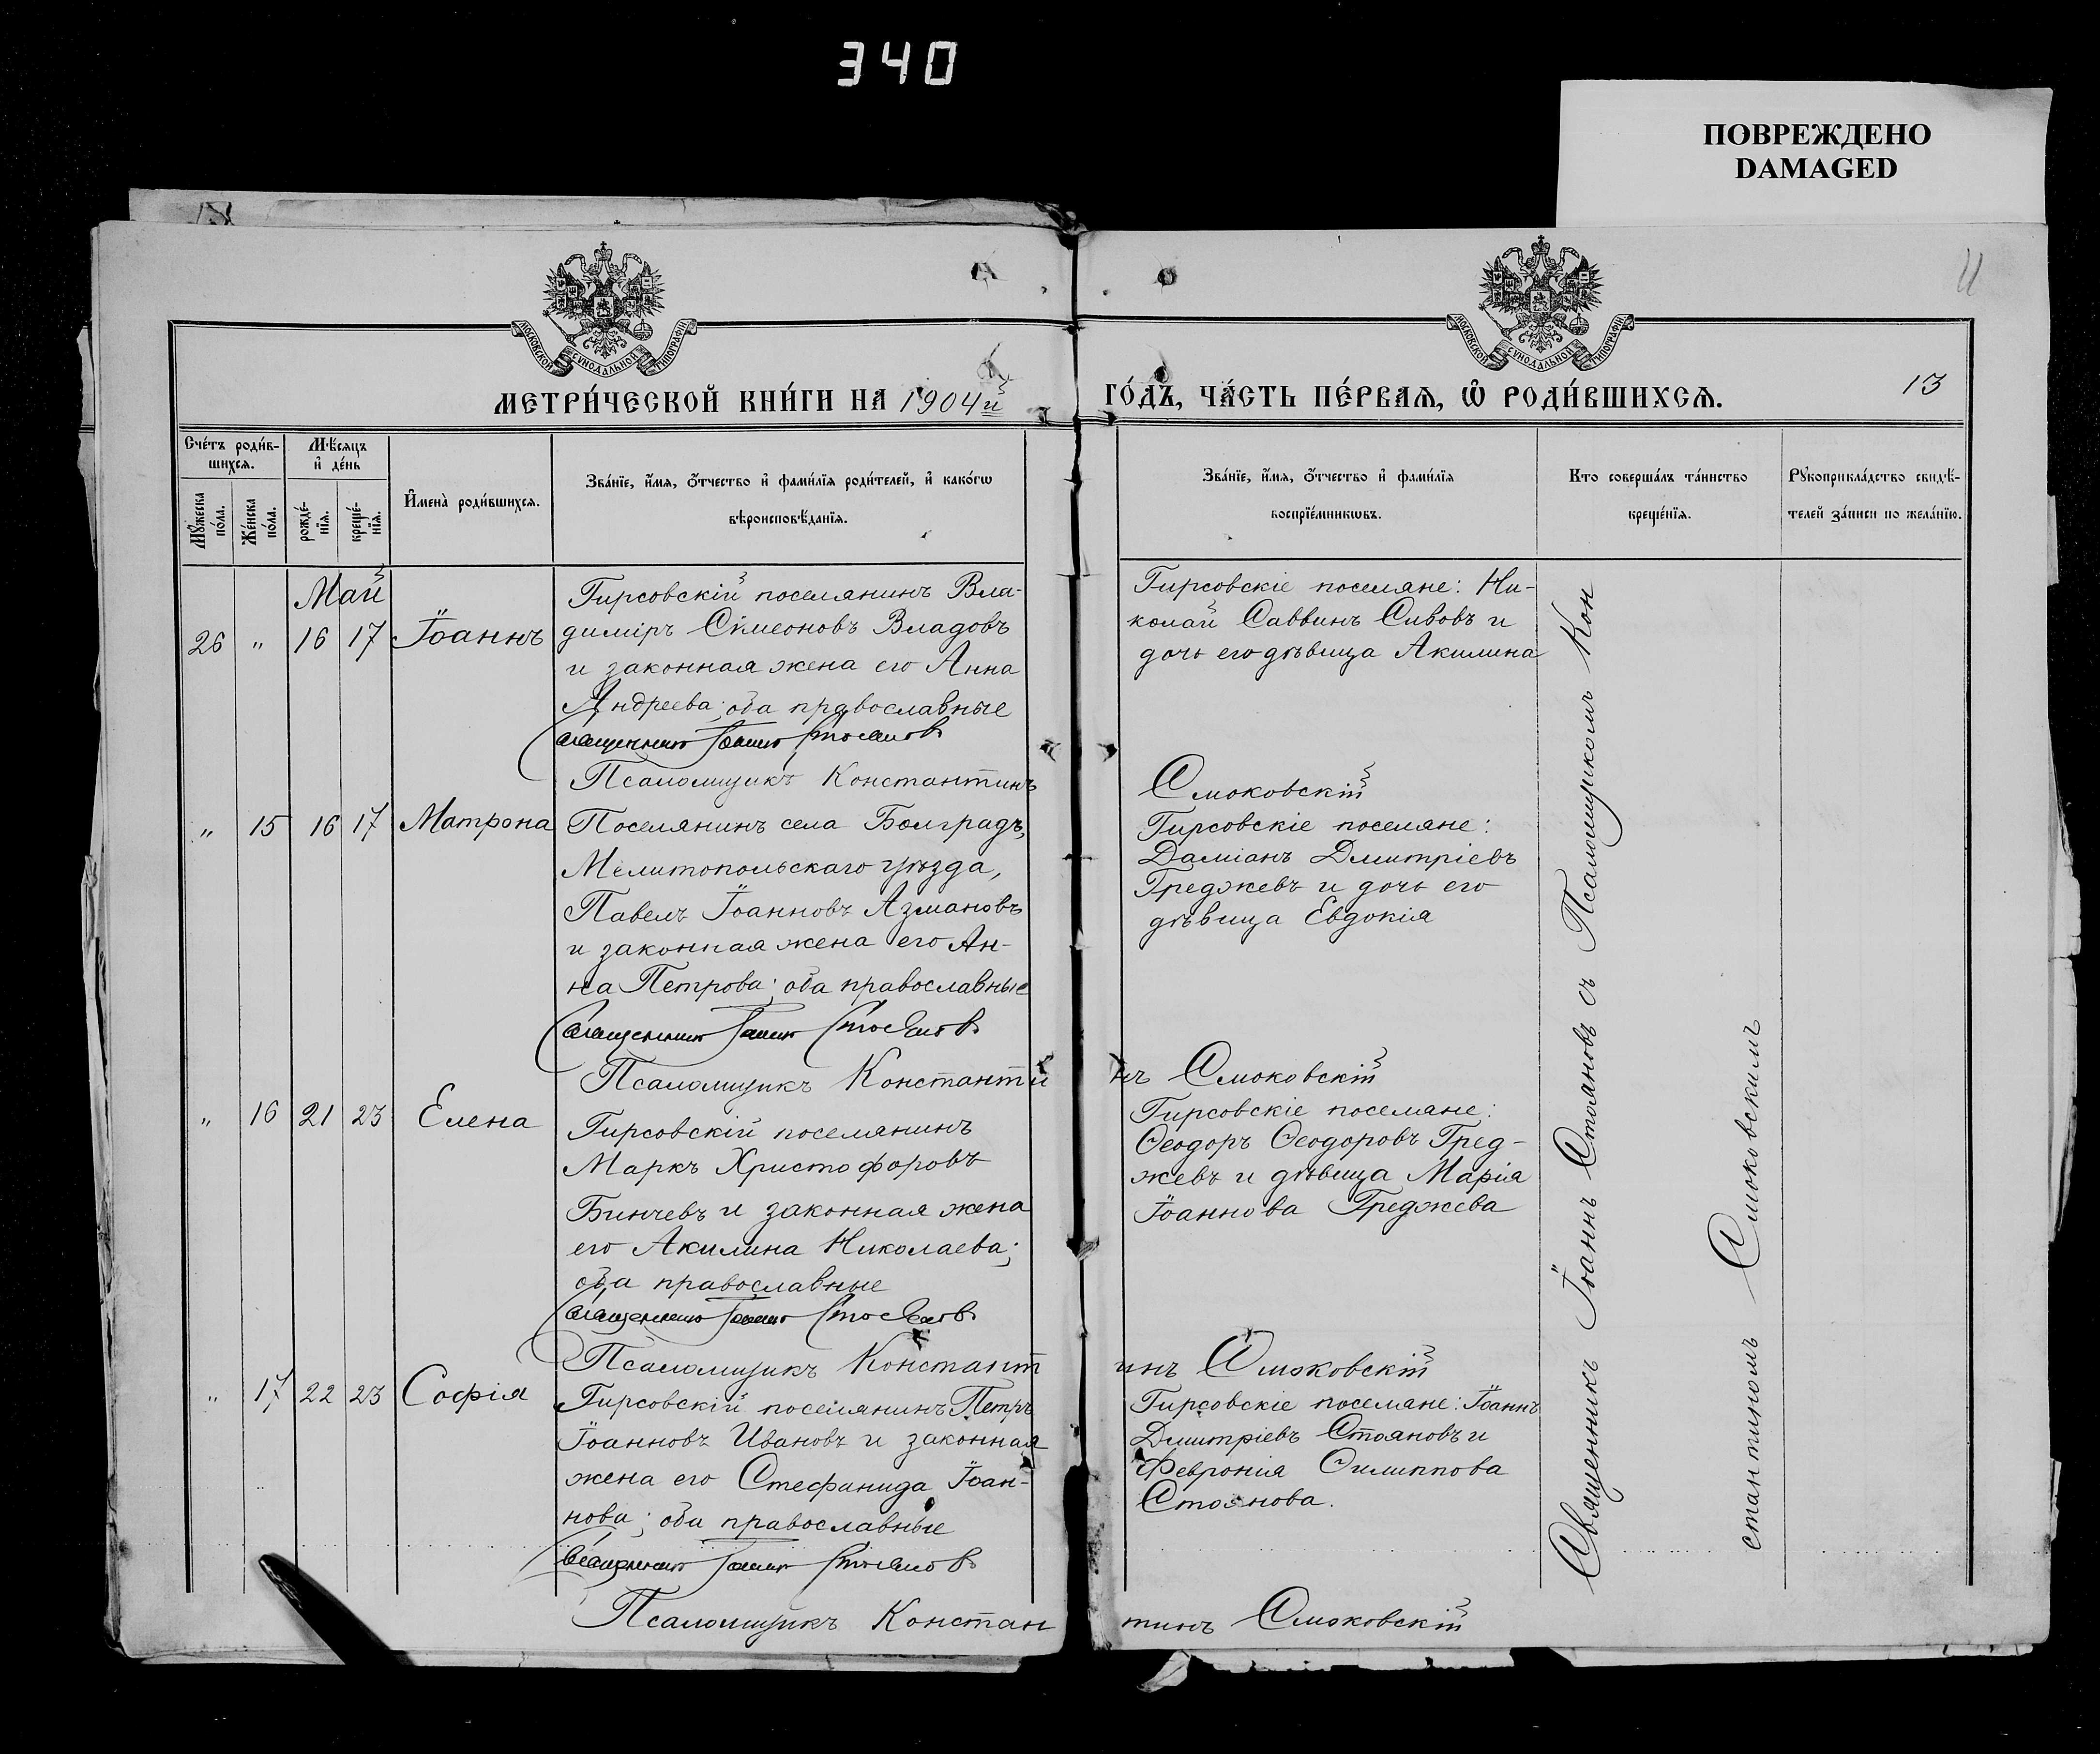 340
ПОВРЕЖДЕНО
DAMAGED
11
МОСКОВСКОЙ СУНОДАЛЬНОЙ ТИПОГРАФІИ
МОСКОВСКОЙ СУНОДАЛЬНОЙ ТИПОГРАФІИ
МЕТРИ́ЧЕСКОЙ КНИ́ГИ НА 1904й ГО́ДЪ, ЧА́СТЬ ПЕ́РВАѦ, Ѿ РОДИ́ВШИХСѦ.
13
Сче́тъ роди́в-
шихсѧ.
Мѣ́сѧцъ
и҆ де́нь
Мꙋ́жеска
по́ла.
Же́нска
по́ла.
рожде́-
нїѧ.
креще́-
нїѧ.
И҆мена̀ роди́вшихсѧ.
Зва́нїе, и҆́мѧ, ѻ҆́тчество и҆ фами́лїѧ роди́телей, и҆ како́гѡ
вѣроисповѣ́данїѧ.
Зва́нїе, и҆́мѧ, ѻ҆́тчество и҆ фами́лїѧ
воспрїе́мникѡвъ.
Кто соверша́лъ та́инство
креще́нїѧ.
Рꙋкоприкла́дство свидѣ́-
телей за́писи по жела́нїю.
Май
26 " 16 17 Іоаннъ
Гирсовскій поселянинъ Вла-
димiръ Симеоновъ Владовъ
и законная жена его Анна
Андреева; оба православные
Священникъ Іоаннъ Стояновъ
Псаломщикъ Константинъ Смоковскій
Гирсовскіе поселяне: Ни-
колай Саввинъ Сивовъ и
дочь его дѣвица Акилина
" 15 16 17 Матрона
Поселянинъ села Болградъ,
Мелитопольскаго уѣзда,
Павелъ Іоанновъ Азмановъ
и законная жена его Ан-
на Петрова; оба православные
Священникъ Іоаннъ Стояновъ
Псаломщикъ Константинъ Смоковскій
Гирсовскіе поселяне:
Даміанъ Дмитріевъ
Греджевъ и дочь его
дѣвица Евдокія
" 16 21 23 Елена
Гирсовскій поселянинъ
Маркъ Христофоровъ
Бинчевъ и законная жена
его Акилина Николаева;
оба православные
Священникъ Іоаннъ Стояновъ
Псаломщикъ Константинъ Смоковскій
Гирсовскіе поселяне:
Ѳеодоръ Ѳеодоровъ Гред-
жевъ и дѣвица Марія
Іоаннова Греджева
" 17 22 23 Софія
Гирсовскій поселянинъ Петръ
Іоанновъ Ивановъ и законная
жена его Стефанида Іоан-
нова; оба православные
Священникъ Іоаннъ Стояновъ
Псаломщикъ Константинъ Смоковскій
Гирсовскіе поселяне: Іоаннъ
Дмитріевъ Стояновъ и
Февронія Филиппова
Стоянова.
Священникъ Іоаннъ Стояновъ съ Псаломщикомъ Кон
стантиномъ Смоковскимъ